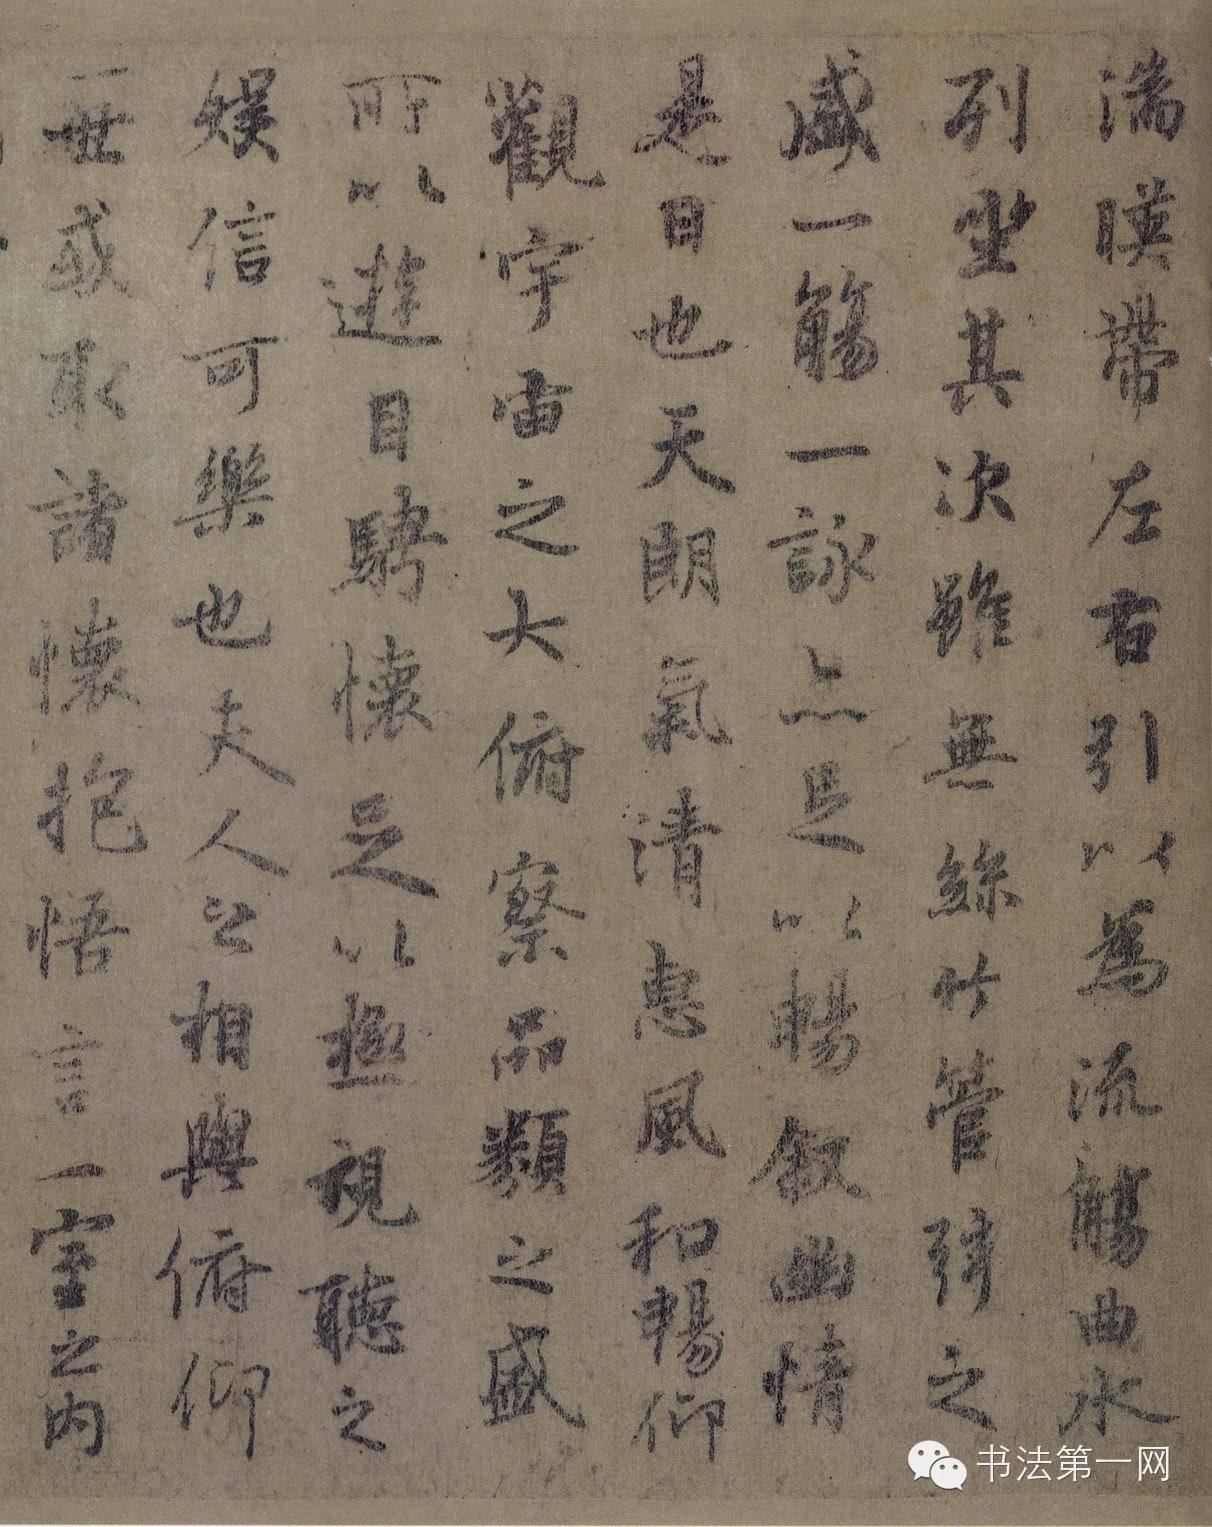 湍暎帶左右引以為流觴曲水
列坐其次雖無絲竹管弦之
盛一觴一詠亦足以暢叙幽情
是日也天朗氣清惠風和暢仰
觀宇宙之大俯察品類之盛
所以遊目騁懷足以極視聽之
娛信可樂也夫人之相與俯仰
一世或取諸懷抱悟言一室之內
书法第一网